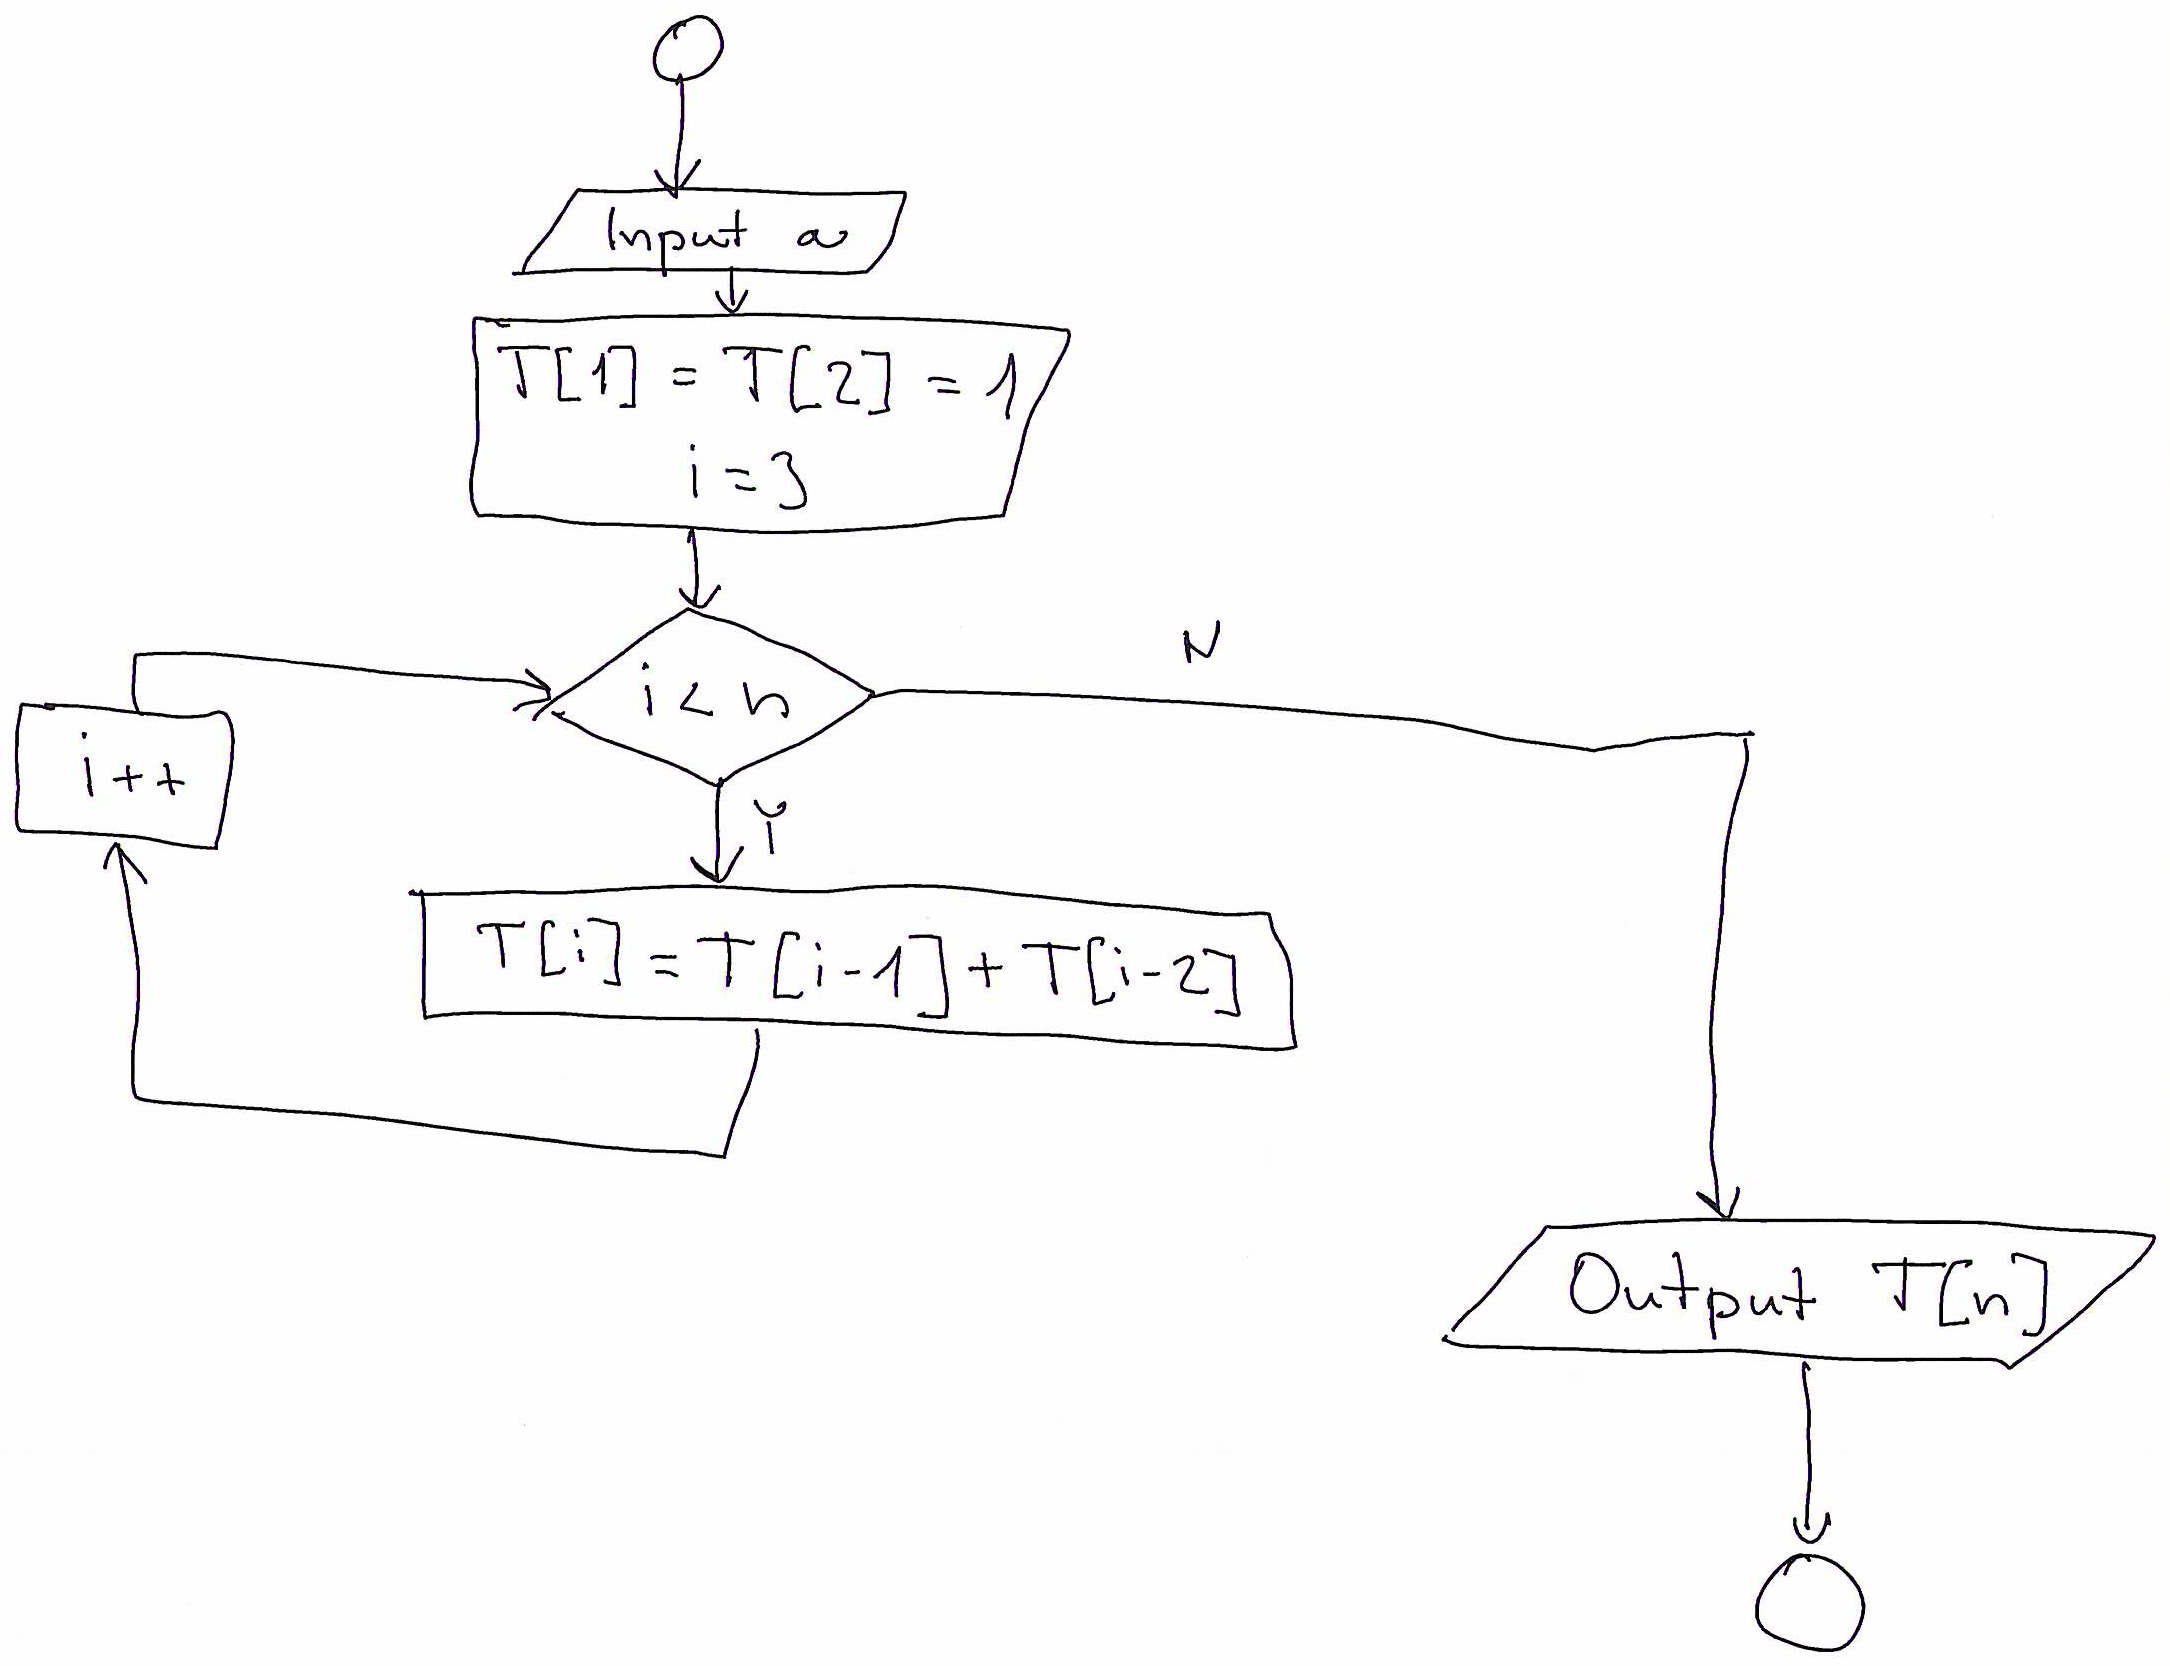 Input a
T[1] = T[2] = 1
i = 3
i < n
N
i++
Y
T[i] = T[i-1] + T[i-2]
Output T[n]